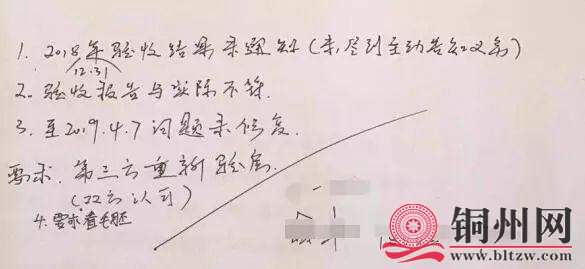 1. 2018年验收结果未通知(未尽到主动告知义务)
12.31
2. 验收报告与实际不符.
3. 至2019.4.7问题未修复.
要求. 第三方重新验房.
(双方认可)
4. 要求看毛胚
铜州网
www.bltzw.com